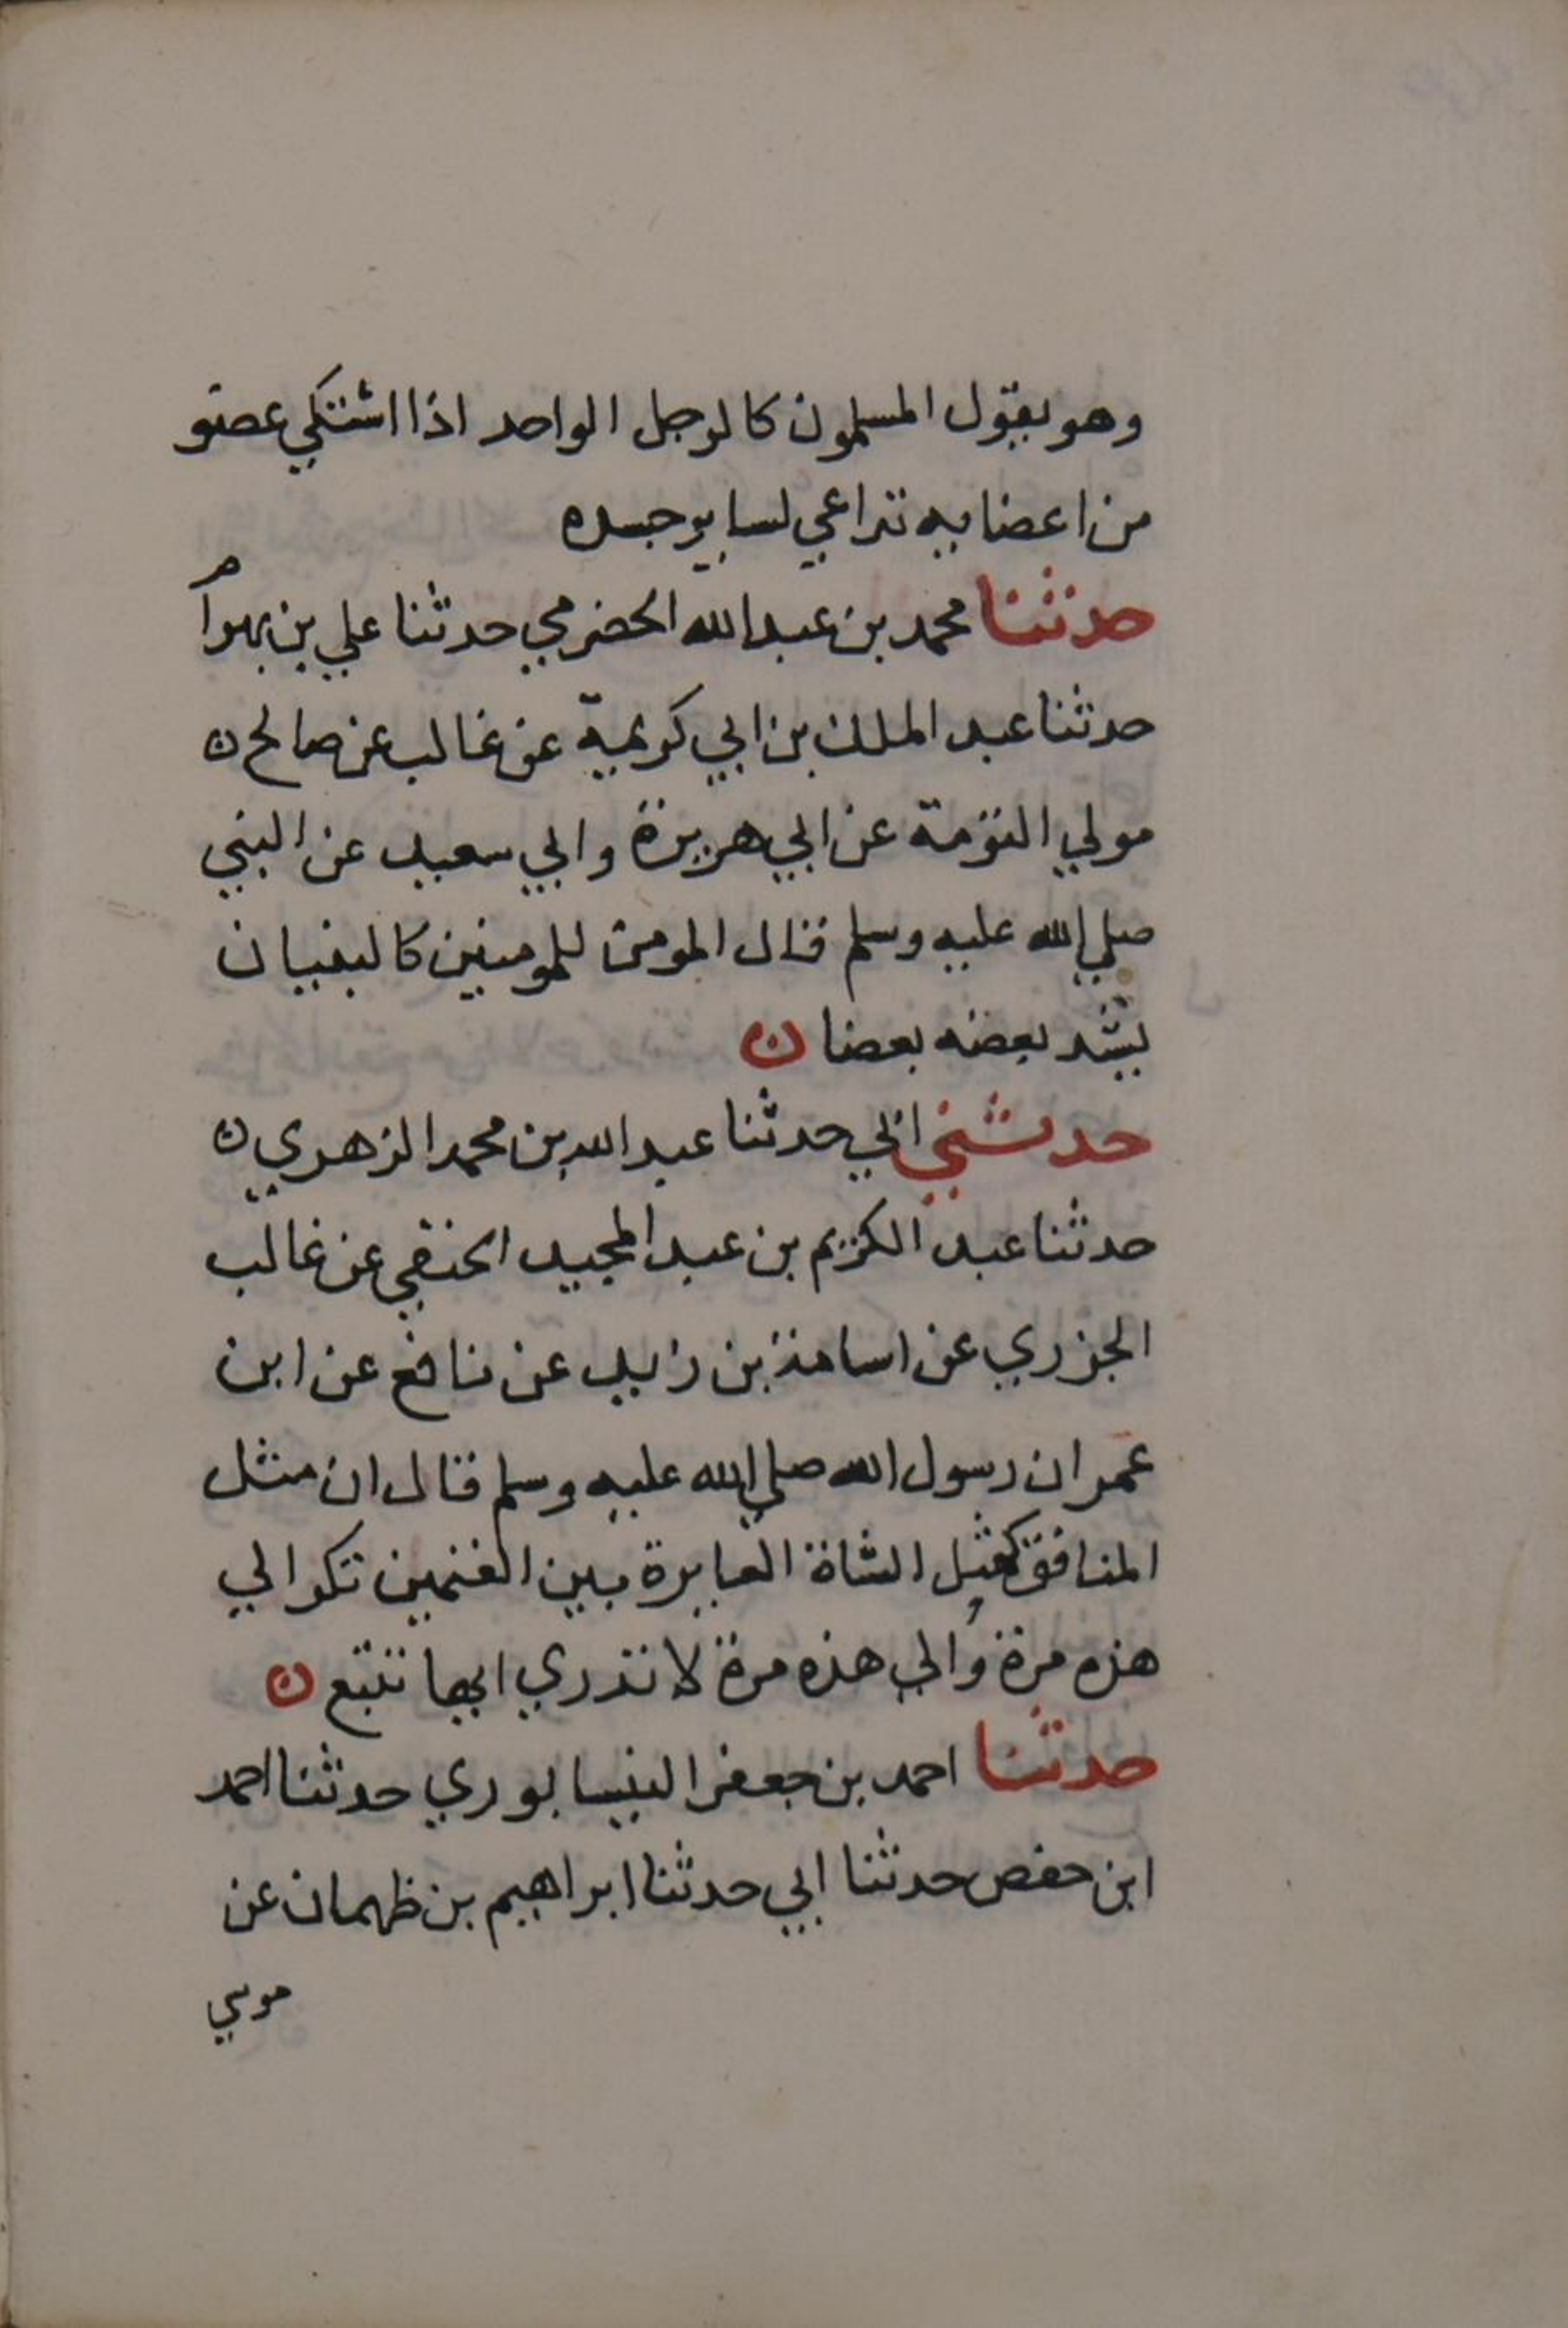 وهو يقول المسلمون كالرجل الواحد اذا اشتكي عضو
من اعضايه تداعي لسايرجسده
حدثنا محمد بن عبدالله الحضرمي حدثنا علي بن بهرام
حدثنا عبد الملك بن ابي كريمة عن غالب عن صالح ن
مولي التؤمة عن ابي هريرة وابي سعيد عن النبي
صلي الله عليه وسلم قال المومن للمومنين كالبنيان
يشد بعضه بعضا ن
حدثني ابي حدثنا عبد الله بن محمد الزهري ن
حدثنا عبد الكريم بن عبد المجيد الحنفي عن غالب
الجزري عن اسامة بن زيد عن نافع عن ابن
عمر ان رسول الله صلي الله عليه وسلم قال ان مثل
المنافق كمثل الشاة العايرة بين الغنمين تكر الي
هذه مرة والي هذه مرة لا تدري ايها تتبع ن
حدثنا احمد بن جعفر النيسابوري حدثنا احمد
ابن حفص حدثنا ابي حدثنا ابراهيم بن ظهمان عن
موسي